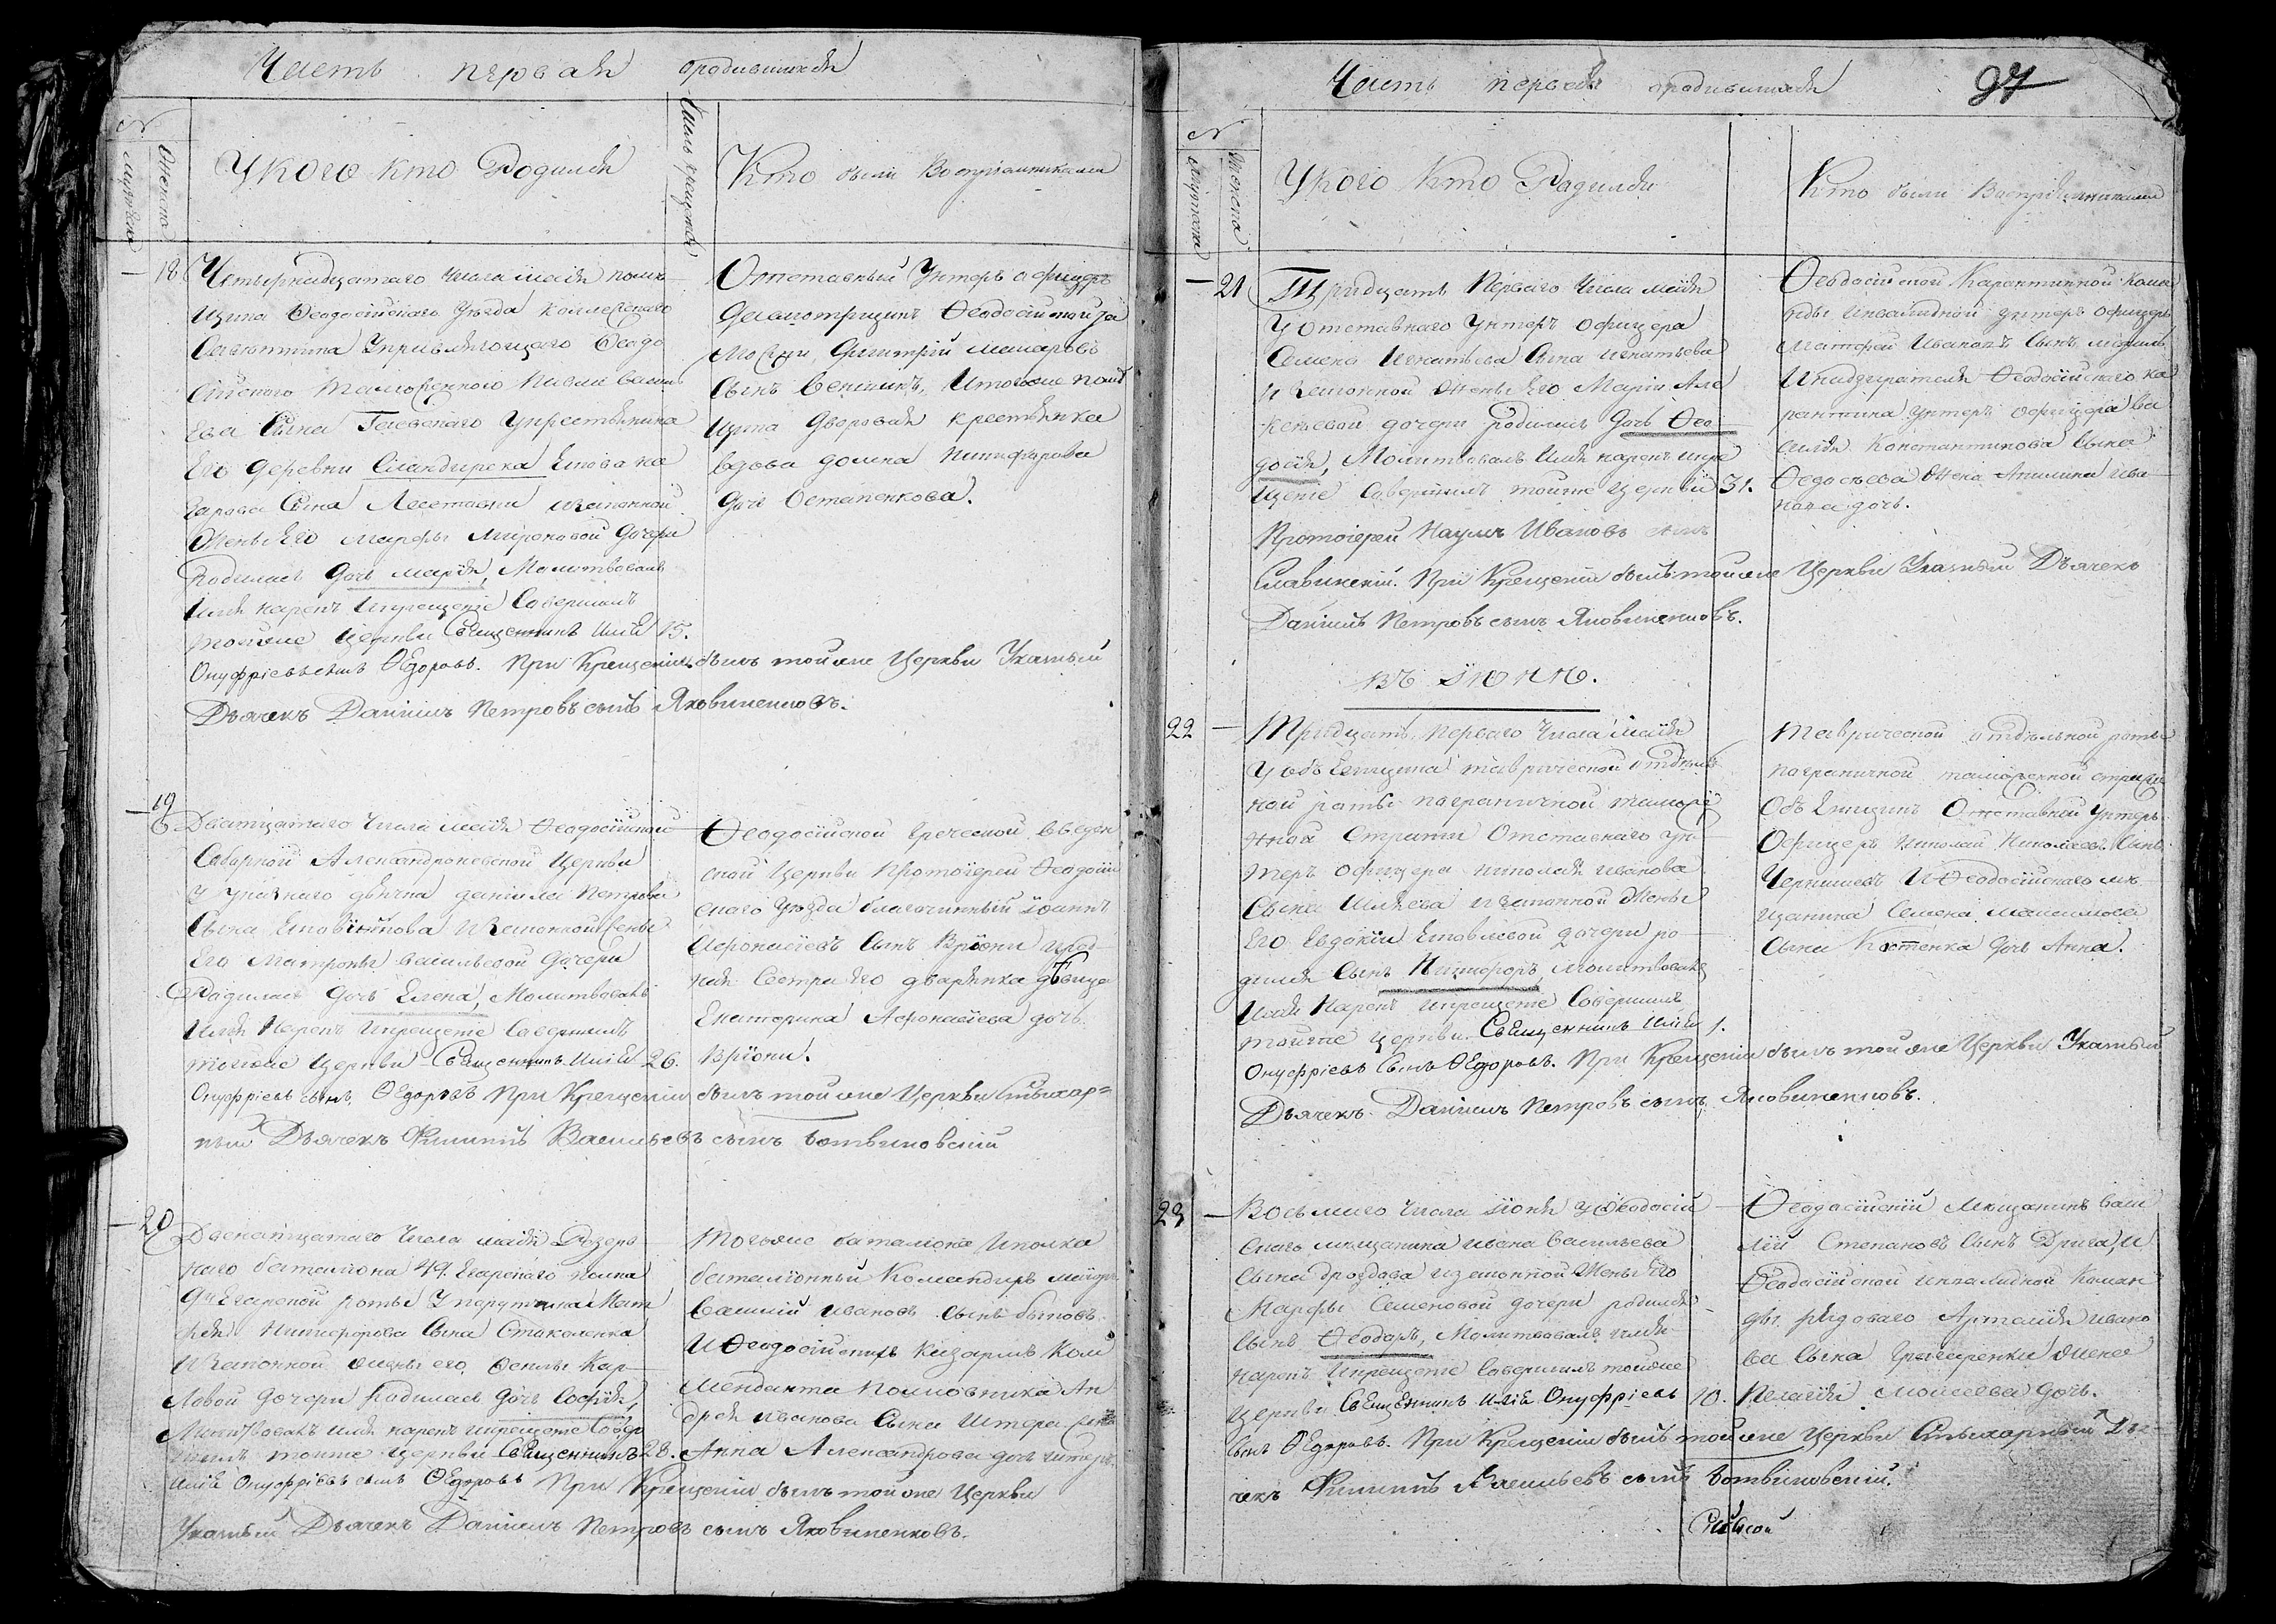 Часть первая о родившихся
№
Мужеска
Женска
У кого кто Родился
Число крещения
Кто были Восприемниками
18
Четырнадцатаго числа маія помѣ
щика Ѳеодосійскаго уѣзда коллежскаго
Совѣтника Управляющаго Ѳеодо
сійскаго таможеннаго Павла василь
ева Сына Гаевскаго у крестьянина
Его деревни
сына изаконной
жены Его марфы мироновой дочери
Родилась дочь марія, Молитвовалъ
имя нарекъ икрещеніе Совершилъ
тойже Церкви Священникъ Илія 15.
Онуфріевъ сынъ Ѳедоровъ. При Крещеніи былъ тойже Церкви Указный
Дьячекъ Даніилъ Петровъ сынъ Яковишенковъ.
Отставный Унтеръ офицеръ
Ѳеодосійской за
Димитрій макаровъ
Сынъ итогоже помѣ
щика дворовая крестьянка
вдова домна никифорова
дочь Остапенкова.
19
Двадцатаго числа маія Ѳеодосійской
Соборной Александроневской Церкви
у указнаго дьячка даніила Петрова
Сына изаконной жены
Его Матроны васильевой дочери
Родилась дочь Елена, Молитвовалъ
имя Нарекъ икрещеніе Совершилъ
тойже Церкви Священникъ Илія 26.
Онуфріевъ сынъ Ѳедоровъ При Крещеніи былъ тойже Церкви Стихар=
ный Дьячекъ Филиппъ Васильевъ сынъ Ботвиновскій
Ѳеодосійской греческой введен
ской Церкви Протоіерей Ѳеодосій
скаго уѣзда благочинный Іоаннъ
Афонасіевъ Сынъ Вріони и род
ная Сестра Его дворянка дѣвица
Екатерина Афонасіева дочь
Вріони.
20
Двенатцатаго Числа маія Резерв
наго баталіона 49. Егарскаго полка
Егарской роты У порутчика Мат
фея Никифорова Сына Стоколенка
изаконной жены его Осклы Кар
ловой дочери Родилась дочь Софія,
Молитвовалъ имя нарекъ икрещеніе Совер
шилъ тойже Церкви Священникъ 28.
Илія Онуфріевъ сынъ Ѳедоровъ При Крещеніи былъ тойже Церкви
Указный Дьячекъ Даніилъ Петровъ сынъ Яковишенковъ.
Тогоже баталіона Иполка
баталіонный Командиръ маіоръ
Василій Ивановъ Сынъ быковъ
И Ѳеодосійскихъ казармъ Ком
менданта полковника Ан
дрея Иванова Сына Штера
Анна Александрова дочь Штеръ.
Часть первая о родившихся
97
№
Мужеска
Женска
У кого кто Родился
Кто были Восприемниками
21
Тридцать Перваго Числа маія
У отставнаго унтеръ офицера
Семена Игнатьева Сына игнатьева
изаконной жены Его Маріи Але
ксѣевой дочери родилась дочь Ѳео
досія, Молитвовалъ имя нарекъ икре
щеніе Совершилъ тойже Церкви 31.
Протоіерей Наумъ Ивановъ сынъ
Славинскій. При Крещеніи былъ тойже Церкви Указный Дьячекъ
Даніилъ Петровъ сынъ Яковишенковъ.
Ѳеодосійской Карантинной Кома
нды инвалидной унтеръ офицеръ
матфей Ивановъ Сынъ
Инадзирателя Ѳеодосійскаго ка
рантина унтеръ офицера ва
силія Константинова Сына
Ѳедосѣева Жена Акилина ива
нова дочь.
въ Іюнѣ.
22
Тридцать перваго Числа маія
У объѣздчика таврической отдѣль
ной роты пограничной таможе
нной Стражи Отставнаго ун
теръ офицера николая иванова
Сына изаконной Жены
Его Евдокіи Яковлевой дочери ро
дился Сынъ Никифоръ молитвовалъ
имя Нарекъ икрещеніе Совершилъ
тойже церкви Священникъ Илія 1.
Онуфріевъ Сынъ Ѳедоровъ. При Крещеніи былъ тойже Церкви Указный
Дьячекъ Даніилъ Петровъ сынъ Яковишенковъ.
Таврической отдѣльной роты
пограничной таможенной стражи
Объѣздчикъ Отставной Унтеръ
Офицеръ Николай Николаевъ Сынъ
Чернышевъ И Ѳеодосійскаго мѣ
щанина Семена максимова
сына Костенка дочь Анна.
23
Восьмаго Числа іюня у Ѳеодосій
скаго мещанина ивана Васильева
Сына дроздова изаконной Жены Его
Марфы Семеновой дочери родился
Сынъ Ѳеодоръ, Молитвовалъ имя
нарекъ икрещеніе Совершилъ тойже
Церкви Священникъ Илія Онуфріевъ 10.
сынъ Ѳедоровъ. При Крещеніи былъ тойже Церкви Стихарный Дья-
чекъ Филиппъ Васильевъ сынъ Ботвиновскій.
Ѳеодосійскій Мещанинъ васи
лій Степановъ Сынъ Дрига, и
Ѳеодосійской инвалидной Коман
ды рядоваго Артамія ивано
ва Сына жена
Пелагія Моисеева дочь.